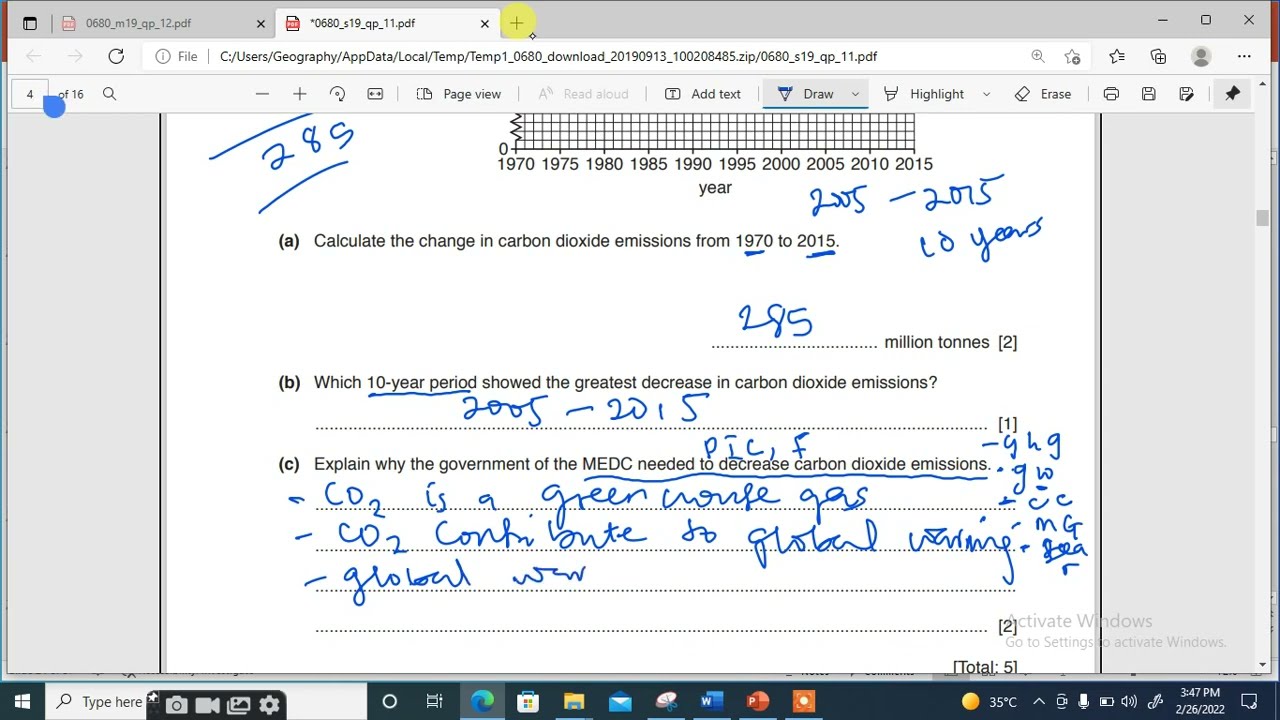 0680_m19_qp_12.pdf
*0680_s19_qp_11.pdf
File C:/Users/Geography/AppData/Local/Temp/Temp1_0680_download_20190913_100208485.zip/0680_s19_qp_11.pdf
4 of 16 Page view Read aloud Add text Draw Highlight Erase
285
0
1970 1975 1980 1985 1990 1995 2000 2005 2010 2015
year
2005 - 2015
10 years
(a) Calculate the change in carbon dioxide emissions from 1970 to 2015.
285
million tonnes [2]
(b) Which 10-year period showed the greatest decrease in carbon dioxide emissions?
2005 - 2015
[1]
PIC, F
- g h g
(c) Explain why the government of the MEDC needed to decrease carbon dioxide emissions.
- g w
- CO2 is a green house gas
- c c
- CO2 contribute to global warming
- global war
Activate Windows
[2]
Go to Settings to activate Windows.
[Total: 5]
Type here
35°C
3:47 PM
2/26/2022